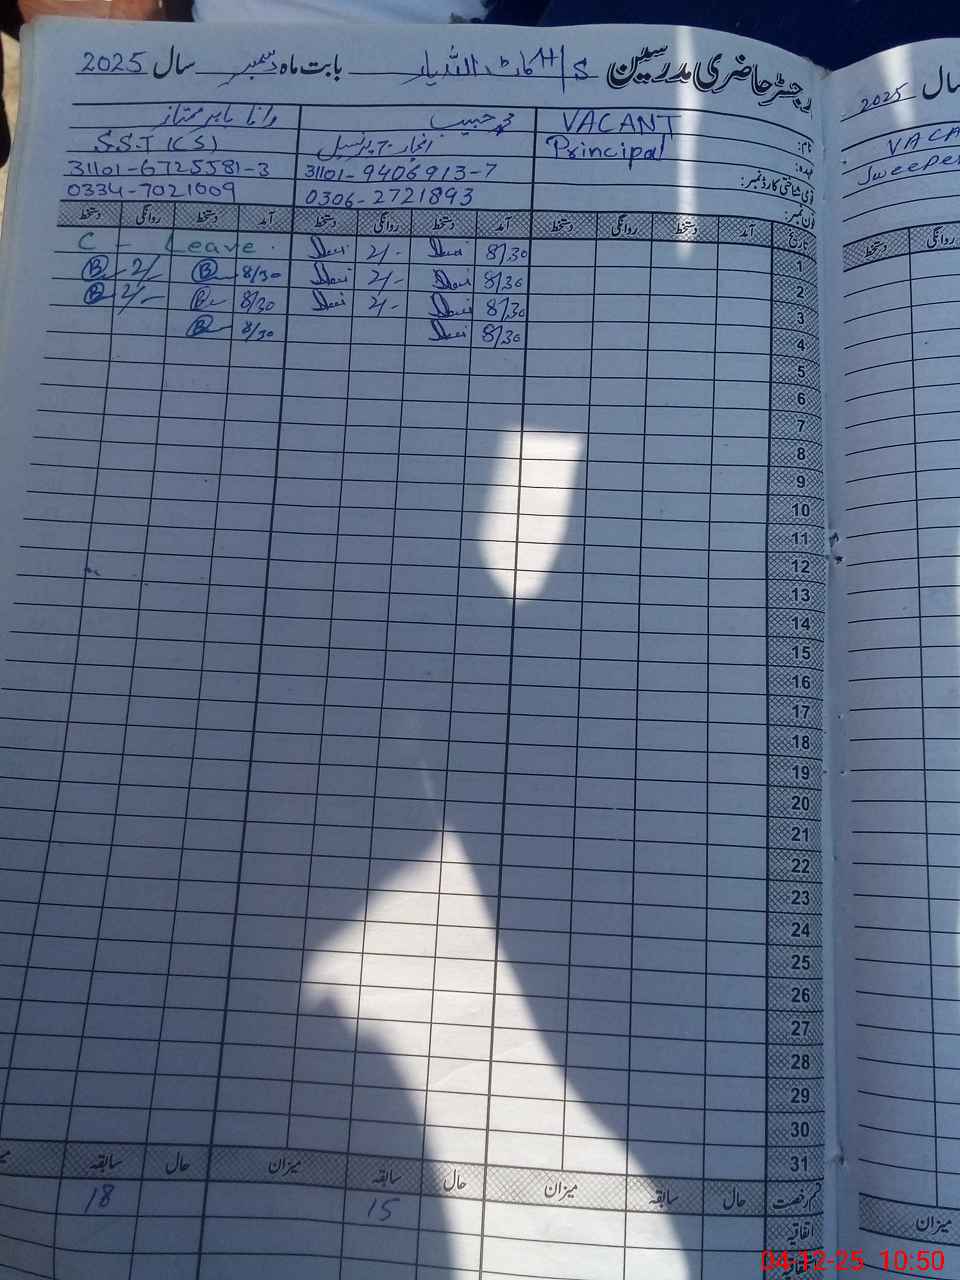 رجسٹر حاضری مدرسین بابت ماہ دسمبر سال 2025
نام: VACANT محمد حبیب رانا بابر ممتاز
عہدہ: Principal انچارج پرنسپل S.S.T (CS)
قومی شناختی کارڈ نمبر: 31101-9406913-7 31101-6725581-3
فون نمبر: 0306-2721893 0334-7021009
تاریخ آمد دستخط روانگی دستخط آمد دستخط روانگی دستخط آمد دستخط روانگی دستخط
1 8/30 2/- C - Leave
2 8/30 2/- 8/30 2/-
3 8/30 2/- 8/30 2/-
4 8/30 8/30
5
6
7
8
9
10
11
12
13
14
15
16
17
18
19
20
21
22
23
24
25
26
27
28
29
30
31
قسم رخصت حال سابقہ میزان حال سابقہ میزان حال سابقہ
اتفاقیہ 15 18
سال 2025
VACA
Sweeper
روانگی دستخط
میزان
04-12-25 10:50